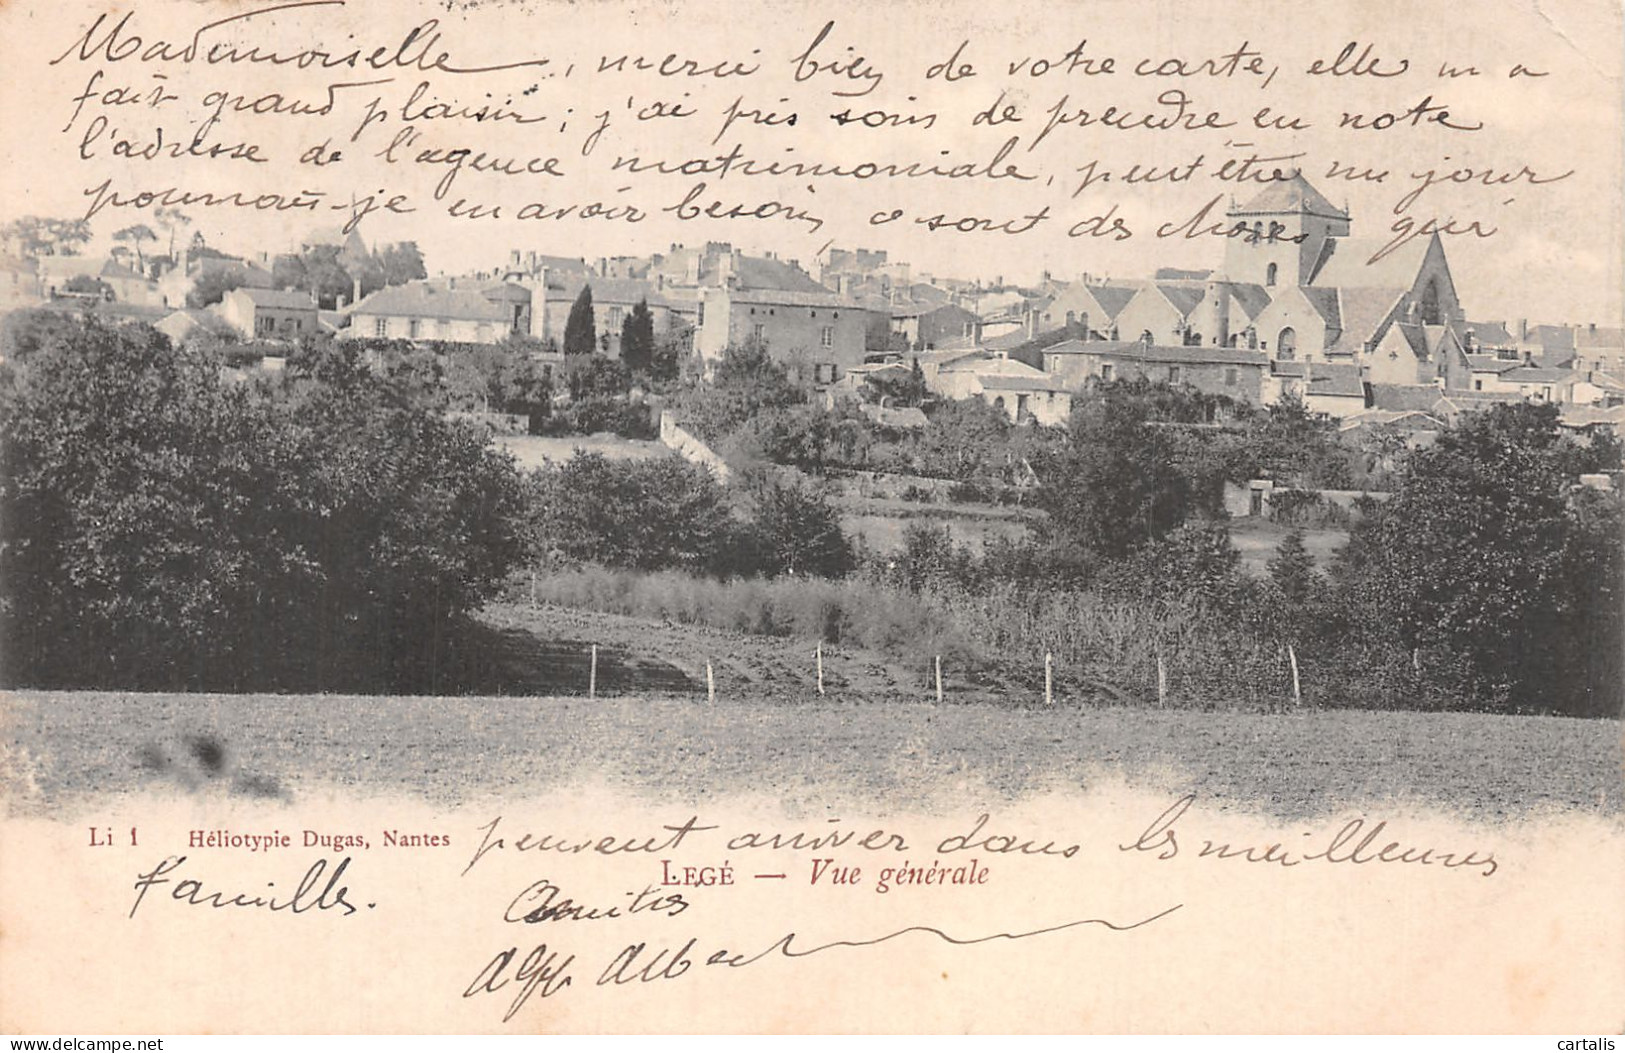 Mademoiselle, merci bien de votre carte, elle m a
fait grand plaisir ; j'ai pris soin de prendre en note
l'adresse de l'agence matrimoniale, peut être un jour
pourrait-je en avoir besoin, ce sont des choses qui
Li 1 Héliotypie Dugas, Nantes
peuvent arriver dans les meilleures
LEGÉ — Vue générale
familles.
Amitiés
Albert
delcampe.net
cartalis